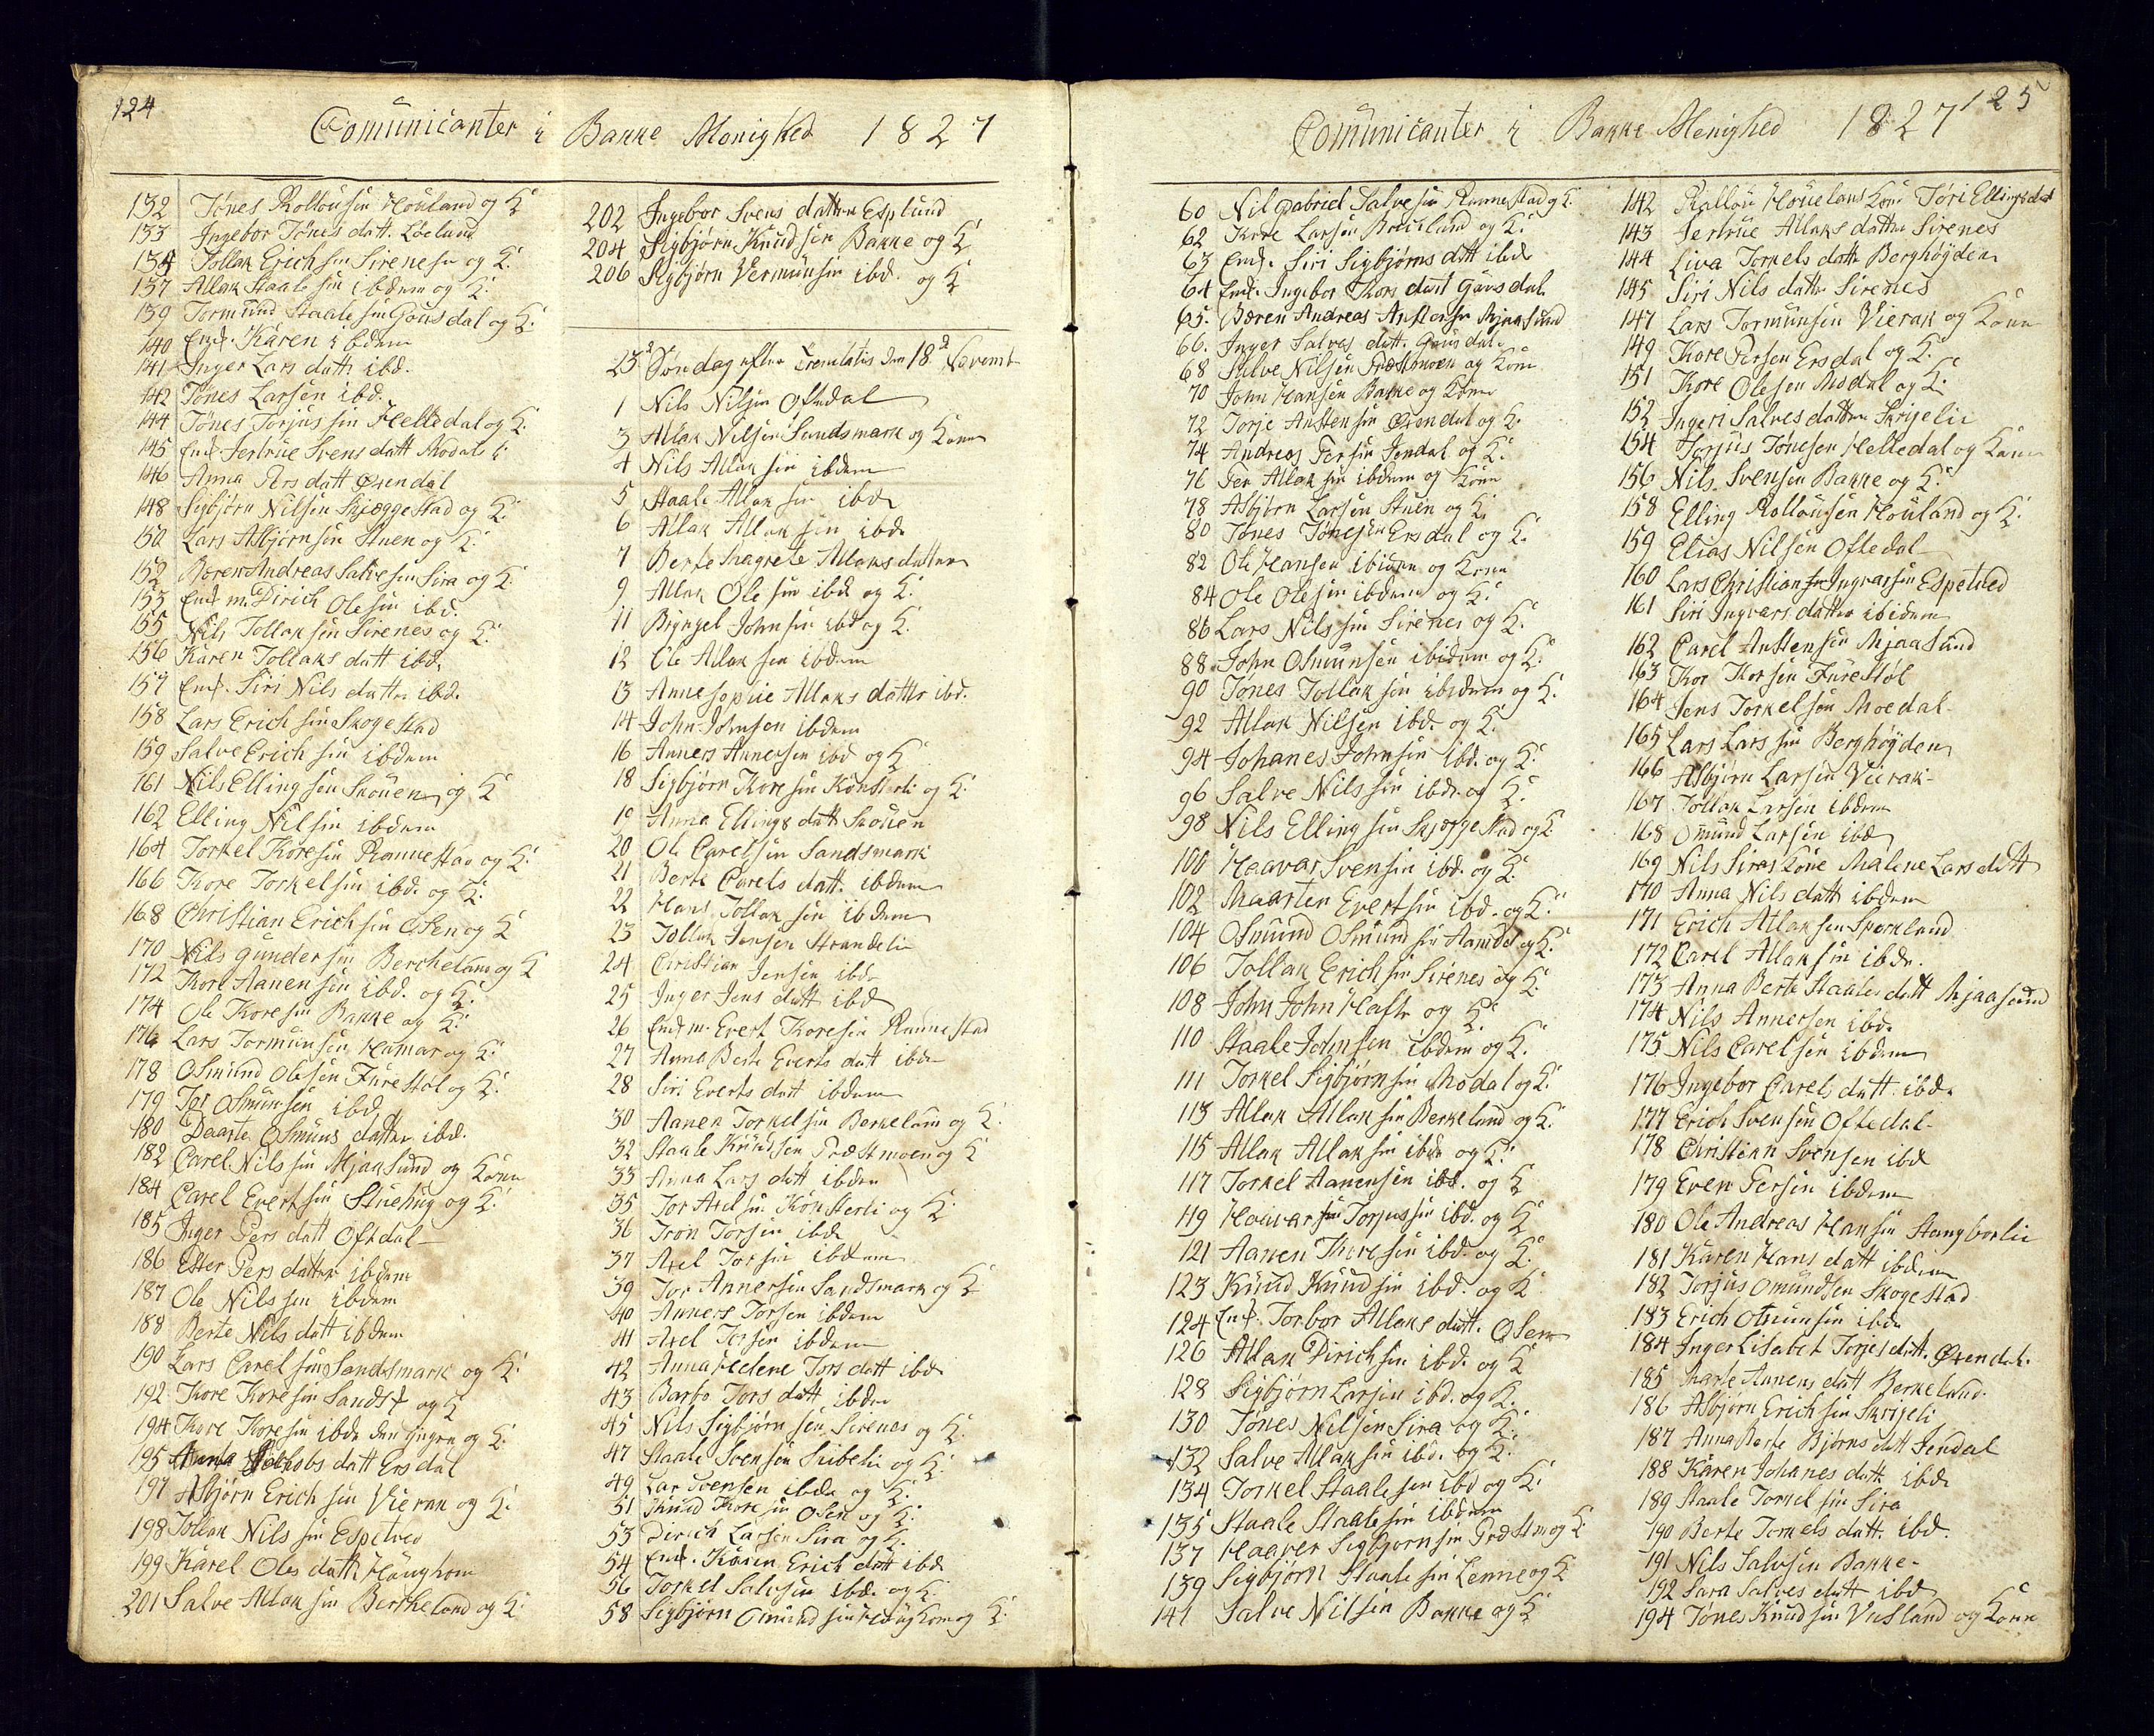 124
Comunicanter i Bakke Menighed 1827
132 Tónes Rolloúsen Hóuland og K.
133 Ingebor Tónes datt. Lóelund
134 Tollak Erichsen Sirenes og K.
137 Atlak Staalesen ibdem og K.
139 Tormund Staalesen Gousdal og K.
140 Enk. Karen ibdem
141 Inger Lars datt ibd.
142 Tónes Larsen ibd.
144 Tónes Torjussen Helledal og K.
145 Enk Jertrue Svens datt Modal
146 Anna Pers datt Øxendal
148 Sigbjørn Nilsen Skjeggestad og K.
150 Lars Asbjørnsen Stuen og K.
152 Boren Andreas Salvesen Sira og K.
153 Enk m. Dirich Olesen ibd.
155 Nils Tollaksen Sirenes og K.
156 Karen Tollaks datt ibd.
157 Enk. Siri Nils datter ibd.
158 Lars Erichsen Skogestad
159 Salve Erichsen ibdem
161 Nils Ellingsen Skouen og K
162 Elling Nilsen ibdem
164 Torkel Koresen Ramnestad og K.
166 Kore Torkelsen ibd. og K.
168 Christian Erichsen Osen og K
170 Nils Gundersen Berchelans og K
172 Kore Aanensen ibd. og K.
174 Ole Koresen Bakke og K.
176 Lars Tormunsen Hamar og K.
178 Osmund Olesen Furestøl og K.
179 Tor Osmunsen ibd
180 Daarte Osmuns datter ibd.
182 Carel Nilssen Mjaasund og Kone
184 Carel Evertsen Stuehug og K.
185 Inger Pers datt Oftdal
186 Ester Pers datter ibdem
187 Ole Nilssen ibdem
188 Berte Nils datt ibdem
190 Lars Carelsen Sandsmark og K.
192 Kore Koresen Sandst og K
194 Kore Koresen ibd. den yngre og K.
195 Anna Jakobs datt Ersdal
197 Asbjørn Erichsen Vierak og K.
198 Tollak Nilssen Espetved
199 Karel Oles datt Haughom
201 Salve Atlaksen Bercheland og K.
202 Ingebor Svens datter Esplund
204 Sigbjørn Knudsen Bakke og K
206 Sigbjørn Vermunsen ibd. og K
23de Søndag efter Trenitatis den 18de Novembr
1 Nils Nilsen Oftedal
3 Atlak Nilsen Sandsmark og Kone
4 Nils Atlaksen ibdem
5 Staale Atlaksen ibd.
6 Atlak Atlaksen ibd.
7 Berte Magrete Atlaks datter
9 Atlak Olesen ibd. og K.
11 Bryngel Johnsen ibd og K.
12 Ole Atlaksen ibdem
13 Anne Sophie Atlaks datter ibd.
14 John Johnsen ibdem
16 Anners Annersen ibd og K
18 Sigbjørn Koresen Konsterli og K.
19 Anna Ellings datt Skouen
20 Ole Carelsen Sandsmark
21 Berte Carels datt. ibdem
22 Hans Tollaksen ibdem
23 Tollak Jensen Strandelie
24 Christian Jensen ibd.
25 Inger Jens datt ibd
26 Enk m. Evert Koresen Ramnestad
27 Anna Berte Everts datt ibd
28 Siri Everts datt ibdem
30 Aanen Torkelsen Berkelans og K.
32 Staale Knudsen Præstmoen og K
33 Anna Lars datt ibdem
35 Tor Axelsen Konsterli og K
36 Tron Torsen ibd.
37 Axel Torsen ibdem
39 Tor Annersen Sandsmark og K
40 Anners Torsen ibdem
41 Axel Torsen ibdem
42 Anna Helene Tors datt ibd
43 Barbo Tors datt ibdem
45 Nils Sigbjørnsen Sirenes og K.
47 Staale Svensen Sribelie og K.
49 Lar Svensen ibd. og K.
51 Knud Koresen Osen og K.
53 Derich Larsen Sira og K.
54 Enk. Karen Erichs datt ibd
56 Torkel Salvesen ibd. og K.
58 Sigbjørn Omundsen Haughom og K.
125
Comunicanter i Bakke Menighed 1827
60 Nil Gabriel Salvesen Ramnestad og K.
62 Kore Larsen Bercheland og K.
63 Enk. Siri Sigbjørns datt ibd
64 Enk. Ingebor Kors datt Gausdal
65. Børen Andreas Anstensen Mjaasund
66. Inger Salves datt. Gausdal
68 Salve Nilsen Præstmoen og Kone
70 John Hansen Bakke og Kone
72 Torje Anstensen Øxendal og K.
74 Andreas Persen Jendal og K.
76 Per Atlaksen ibdem og Kone
78 Asbjørn Larsen Stuen og K.
80 Tónes Tónesen Ersdal og K.
82 Ole Hansen ibidem og Kone
84 Ole Olesen ibdem og K.
86 Lars Nilssen Sirenes og K.
88 John Osmunsen ibidem og K.
90 Tónes Tollaksen ibidem og K.
92 Atlak Nilsen ibd. og K.
94 Johanes Johnsen ibd. og K.
96 Salve Nilssen ibd. og K.
98 Nils Ellingsen Skjeggestad og K.
100 Haavar Svensen ibd. og K.
102 Maarten Evertsen ibd. og K.
104 Osmund Osmundsen Aamdal og K.
106 Tollak Erichsen Sirenes og K
108 John John Hafte og K.
110 Staale Johnsen ibdem og K.
111 Torkel Sigbjørnsen Modal og K.
113 Atlak Atlaksen Berkeland og K.
115 Atlak Atlaksen ibd. og K.
117 Torkel Aanensen ibd. og K
119 Haavar Torjussen ibd. og K
121 Aanen Koresen ibd. og K.
123 Knud Knudsen ibd. og K
124 Enk. Torbor Atlaks datt. Osen
126 Atlak Dirichsen ibd. og K
128 Sigbjørn Larsen ibd. og K.
130 Tónes Nilsen Sira og K.
132 Salve Atlaksen ibd. og K.
134 Torkel Staalesen ibd og K.
135 Staale Staalesen ibdem
137 Haaver Sigbjornsen Præstm og K.
139 Sigbjørn Staalesen Lenne og K
141 Salve Nilsen Bakke og K
142 Rallou Houelans Kone Tóri Ellingsdat
143 Jertrue Atlaks datter Sirenes
144 Liva Torkels datt Berghøyden
145 Siri Nils datter Sirenes
147 Lars Tormunsen Vierak og Kone
149 Kore Persen Ersdal og K.
151 Kore Olesen Modal og K.
152 Ingeri Salves datter Skrijelie
154 Torjus Tónesen Helledal og Kone
156 Nils Svensen Bakke og K.
158 Elling Rolloúsen Hóuland og K.
159 Elias Nilsen Oftedal
160 Lars Christian Ingvarsen Espetved
161 Siri Ingvars datter ibidem
162 Carel Anstensen Mjaasund
163 Kor Korsen Furestøl
164 Jens Torkelsen Moedal
165 Lars Larssen Berghøyden
166 Asbjørn Larsen Vierak
167 Tollak Larsen ibdem
168 Omund Larsen ibd
169 Nils Siras Kone Malene Lars datt
170 Anna Nils datt ibdem
171 Erich Atlaksen Sperkland
172 Carel Atlaksen ibd.
173 Anna Berte Staales datt Mjaasund
174 Nils Annersen ibd.
175 Nils Carelsen ibdem
176 Ingebor Carels datt. ibd.
177 Erich Svensen Oftedal
178 Christian Svensen ibd
179 Even Persen ibdem
180 Ole Andreas Hansen Stangborlie
181 Karen Hans datt ibdem
182 Torjus Omundsen Skogestad
183 Erich Osmunsen ibd.
184 Inger Lisabet Torjes datt. Øxendal
185 Marte Aanens datt Berkeland
186 Asbjørn Erichsen Skrijeli
187 Anna Berte Bjørns datt Jendal
188 Karen Johanes datt ibd.
189 Staale Torkelsen Sira
190 Berte Torkels datt. ibd.
191 Nils Salvesen Bakke
192 Sara Salves datt ibd
194 Tónes Knudsen Vusland og Kone